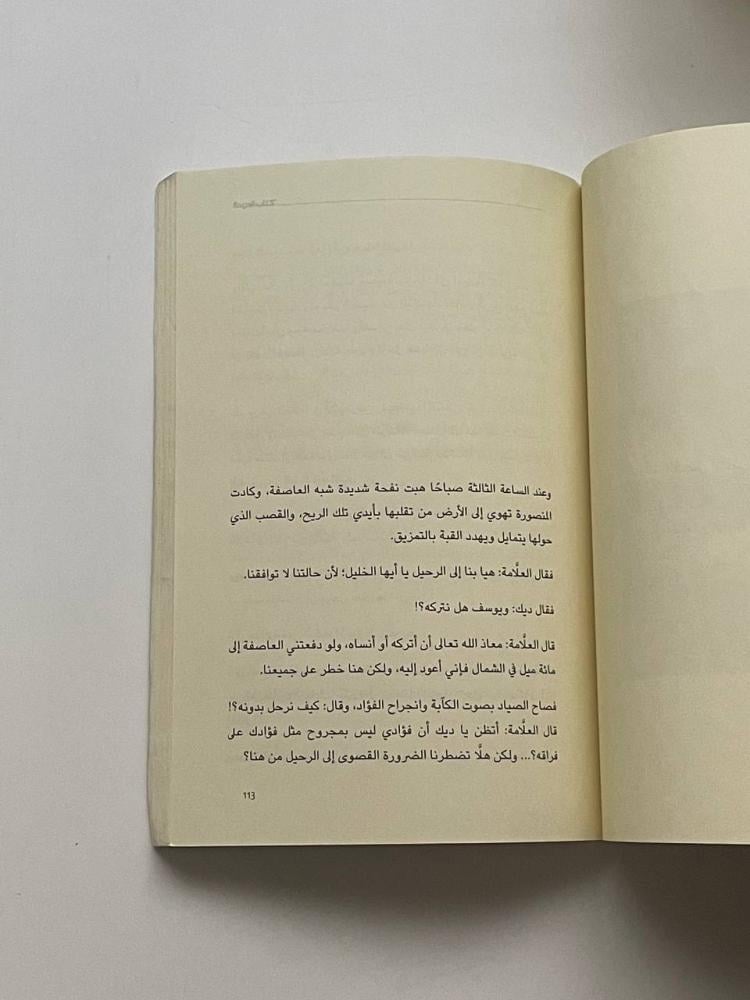 وعند الساعة الثالثة صباحًا هبت نفحة شديدة شبه العاصفة، وكادت
المنصورة تهوي إلى الأرض من تقلبها بأيدي تلك الريح، والقصب الذي
حولها يتمايل ويهدد القبة بالتمزيق.
فقال العلَّامة: هيا بنا إلى الرحيل يا أيها الخليل؛ لأن حالتنا لا توافقنا.
فقال ديك: ويوسف هل نتركه؟!
قال العلَّامة: معاذ الله تعالى أن أتركه أو أنساه، ولو دفعتني العاصفة إلى
مائة ميل في الشمال فإني أعود إليه، ولكن هنا خطر على جميعنا.
فصاح الصياد بصوت الكآبة وانجراح الفؤاد، وقال: كيف نرحل بدونه؟!
قال العلَّامة: أتظن يا ديك أن فؤادي ليس بمجروح مثل فؤادك على
فراقه؟... ولكن هلَّا تضطرنا الضرورة القصوى إلى الرحيل من هنا؟
113